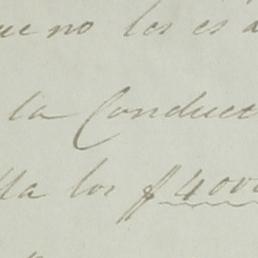 ue no les es a
la Conduct
lla los $4000